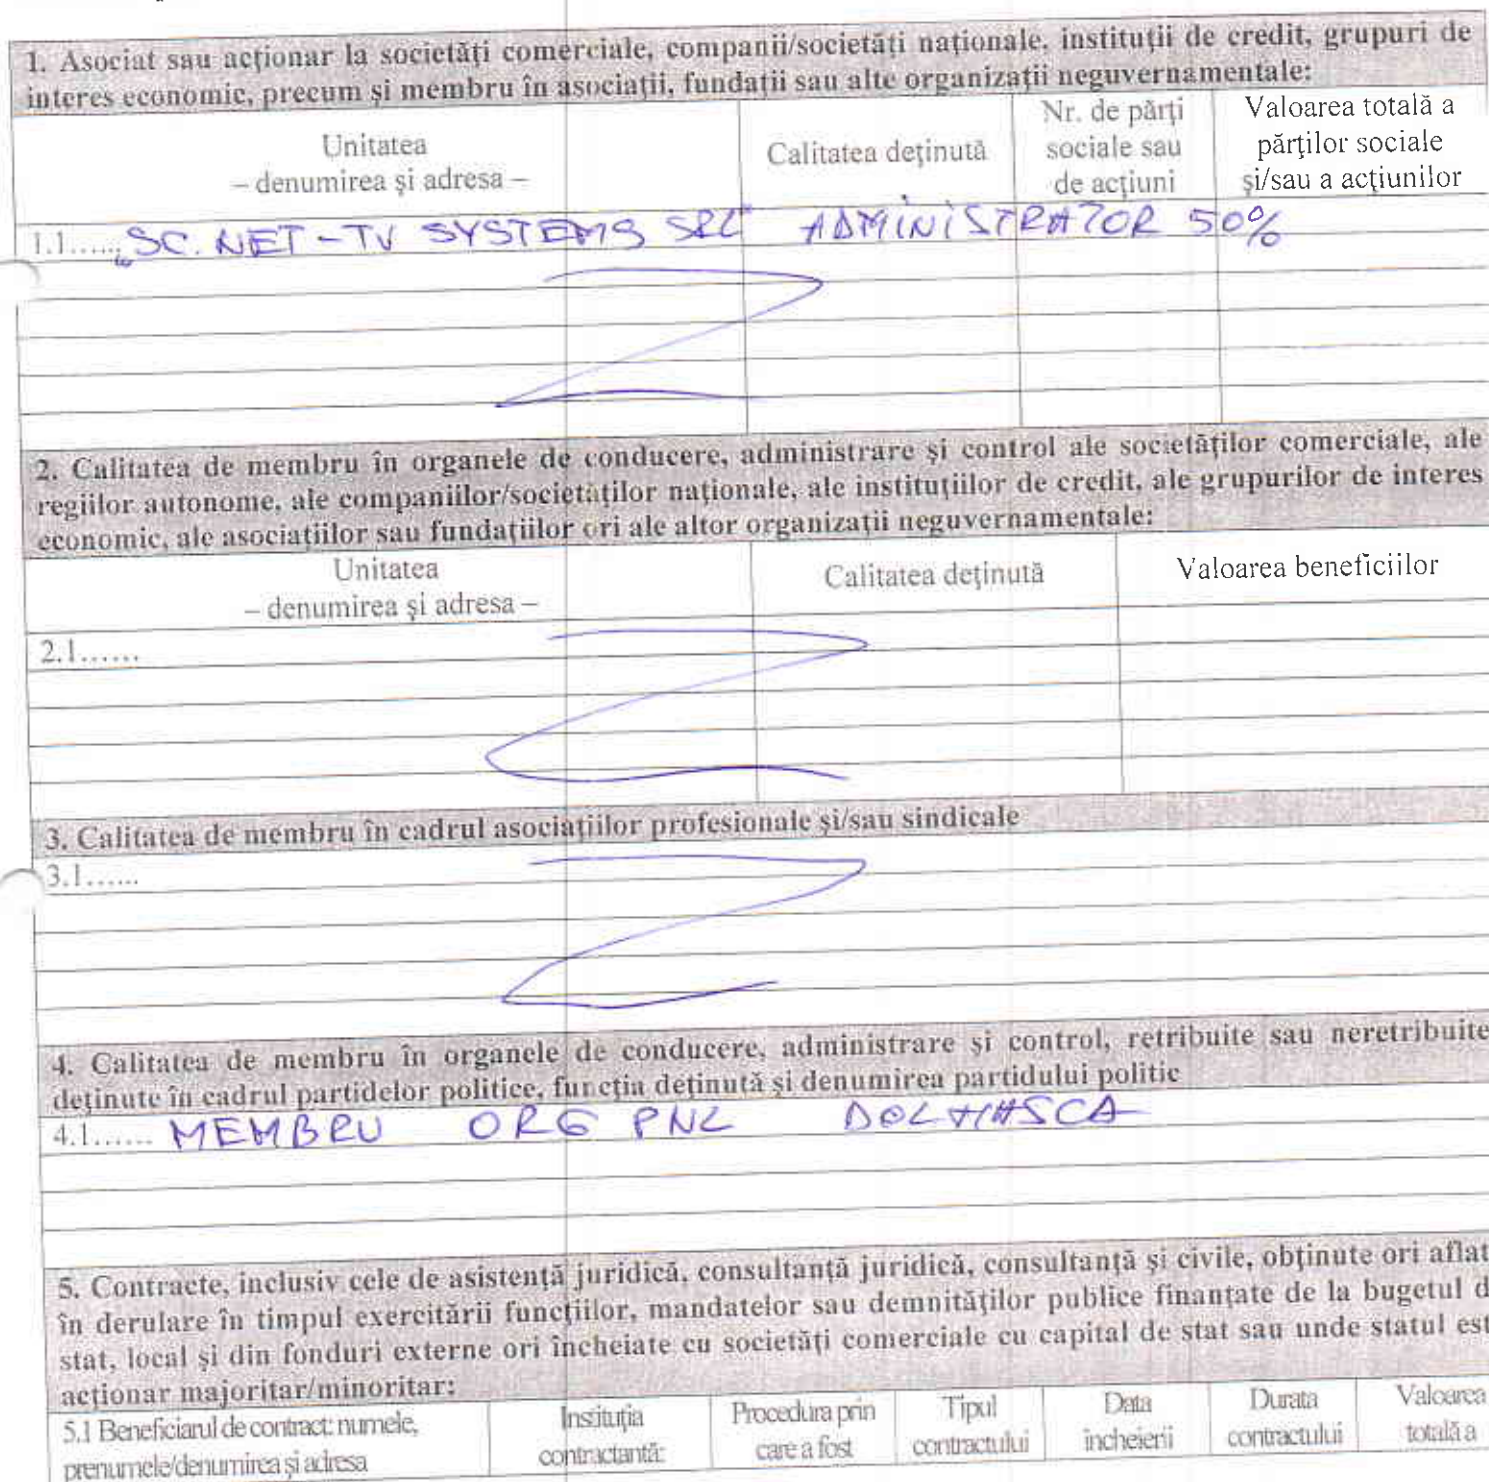 1. Asociat sau acționar la societăți comerciale, companii/societăți naționale, instituții de credit, grupuri de
interes economic, precum și membru în asociații, fundații sau alte organizații neguvernamentale:
Unitatea
– denumirea și adresa –
Calitatea deținută
Nr. de părți
sociale sau
de acțiuni
Valoarea totală a
părților sociale
și/sau a acțiunilor
1.1...... „SC. NET-TV SYSTEMS SRL" ADMINISTRATOR 50%
2. Calitatea de membru în organele de conducere, administrare și control ale societăților comerciale, ale
regiilor autonome, ale companiilor/societăților naționale, ale instituțiilor de credit, ale grupurilor de interes
economic, ale asociațiilor sau fundațiilor ori ale altor organizații neguvernamentale:
Unitatea
– denumirea și adresa –
Calitatea deținută
Valoarea beneficiilor
2.1......
3. Calitatea de membru în cadrul asociațiilor profesionale și/sau sindicale
3.1......
4. Calitatea de membru în organele de conducere, administrare și control, retribuite sau neretribuite
deținute în cadrul partidelor politice, funcția deținută și denumirea partidului politic
4.1...... MEMBRU ORG PNL DOLHASCA
5. Contracte, inclusiv cele de asistență juridică, consultanță juridică, consultanță și civile, obținute ori aflat
în derulare în timpul exercitării funcțiilor, mandatelor sau demnităților publice finanțate de la bugetul d
stat, local și din fonduri externe ori încheiate cu societăți comerciale cu capital de stat sau unde statul est
acționar majoritar/minoritar:
5.1 Beneficiarul de contract: numele,
prenumele/denumirea și adresa
Instituția
contractantă:
Procedura prin
care a fost
Tipul
contractului
Data
încheierii
Durata
contractului
Valoarea
totală a